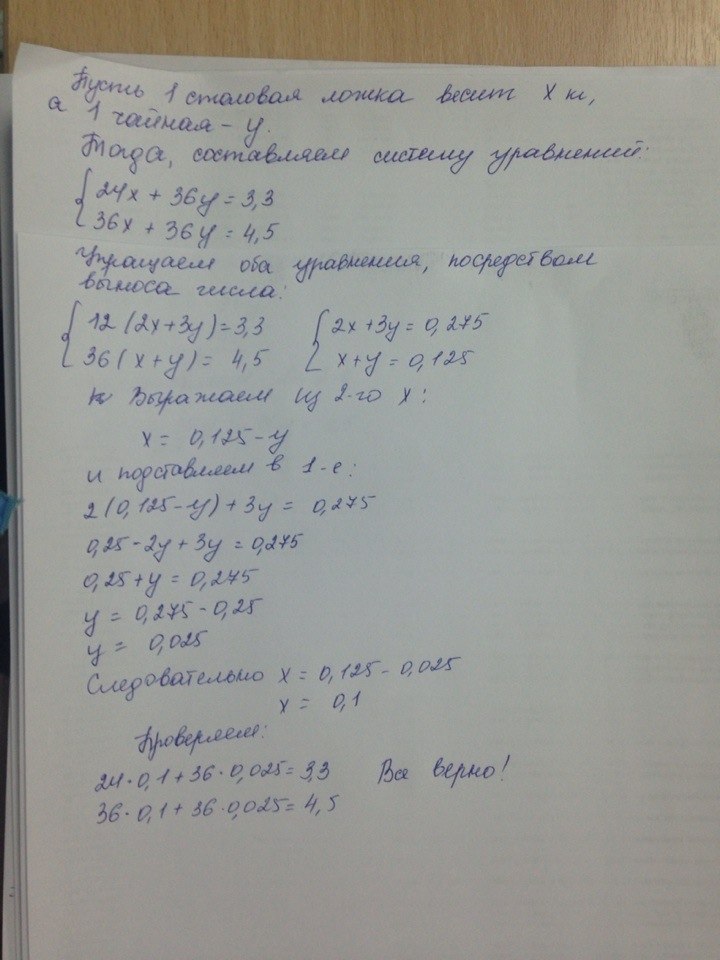 Пусть 1 столовая ложка весит x кг,
а 1 чайная - y.
Тогда, составляем систему уравнений:
24x + 36y = 3,3
36x + 36y = 4,5
Упрощаем оба уравнения, посредством
выноса числа:
12(2x+3y)=3,3 2x+3y=0,275
36(x+y)= 4,5 x+y=0,125
Выражаем из 2-го x:
x= 0,125-y
и подставляем в 1-е:
2(0,125-y)+3y= 0,275
0,25-2y+3y=0,275
0,25+y=0,275
y= 0,275-0,25
y= 0,025
Следовательно x= 0,125-0,025
x= 0,1
Проверяем:
24·0,1+36·0,025=3,3 Все верно!
36·0,1+36·0,025=4,5